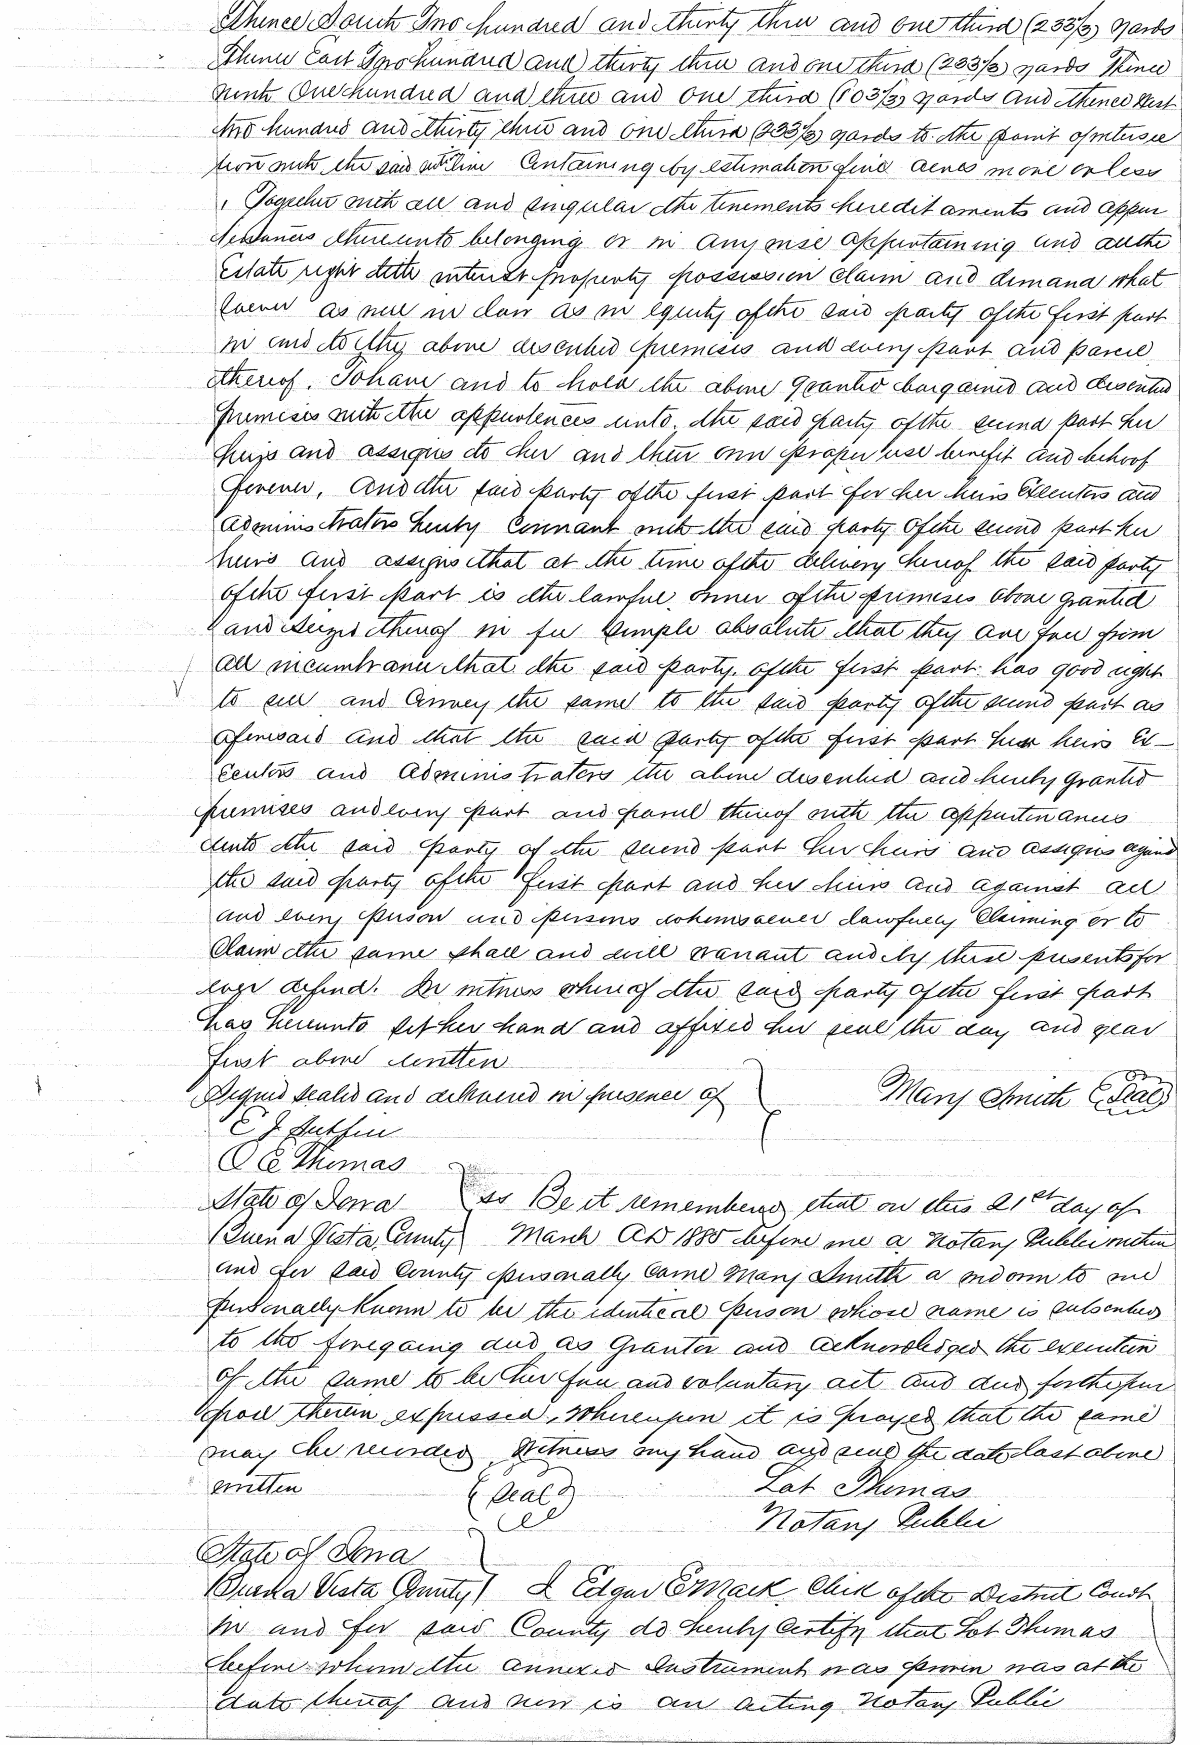 Thence South Two hundred and thirty three and one third (233⅓) yards
Thence East Two hundred and thirty three and one third (233⅓) yards Thence
north One hundred and three and one third (103⅓) yards and thence West
two hundred and thirty three and one third (233⅓) yards to the point of intersec
tion with the said line Containing by estimation five acres more or less
Together with all and singular the tenements heredit aments and appur
tenances thereunto belonging or in any wise appertaining and all the
Estate right title interest property possession claim and demand what
soever as well in law as in equity of the said party of the first part
in and to the above described premises and every part and parcel
thereof. To have and to hold the above granted bargained and described
premises with the appurtences unto the said party of the second part her
heirs and assigns to her and their own proper use benefit and behoof
forever. And the said party of the first part for her heirs Executors and
administrators hereby Covenant with the said party of the second part her
heirs and assigns that at the time of the delivery hereof the said party
of the first part is the lawful owner of the premises above granted
and seized thereof in fee simple absolute that they are free from
all incumbrance that the said party of the first part has good right
to sell and Convey the same to the said party of the second part as
aforesaid and that the said party of the first part her heirs Ex-
ecutors and administraters the above described and hereby granted
premises and every part and parcel thereof with the appurtenances
unto the said party of the second part her heirs and assigns against
the said party of the first part and her heirs and against all
and every person and persons whomsoever lawfully Claiming or to
Claim the same shall and will warrant and by these presents for
ever defend. In witness whereof the said party of the first part
has hereunto set her hand and affixed her seal the day and year
first above written
Signed sealed and delivered in presence of Mary Smith (Seal)
E J
O E Thomas
State of Iowa ss Be it remembered that on this 21st day of
Buena Vista County March AD 1885 before me a Notary Public within
and for said County personally came Mary Smith a widow to me
personally Known to be the identical person whose name is subscribed
to the foregoing deed as Grantor and acknowledged the execution
of the same to be her free and voluntary act and deed for the pur
pose therein expressed, Whereupon it is prayed that the same
may be recorded Witness my hand and seal the date last above
written (Seal) Lot Thomas
Notary Public
State of Iowa
Buena Vista County I Edgar E Mack Clerk of the District Court
in and for said County do hereby Certify that Lot Thomas
before whom the annexed Instrument was proven was at the
date thereof and now is an acting Notary Public